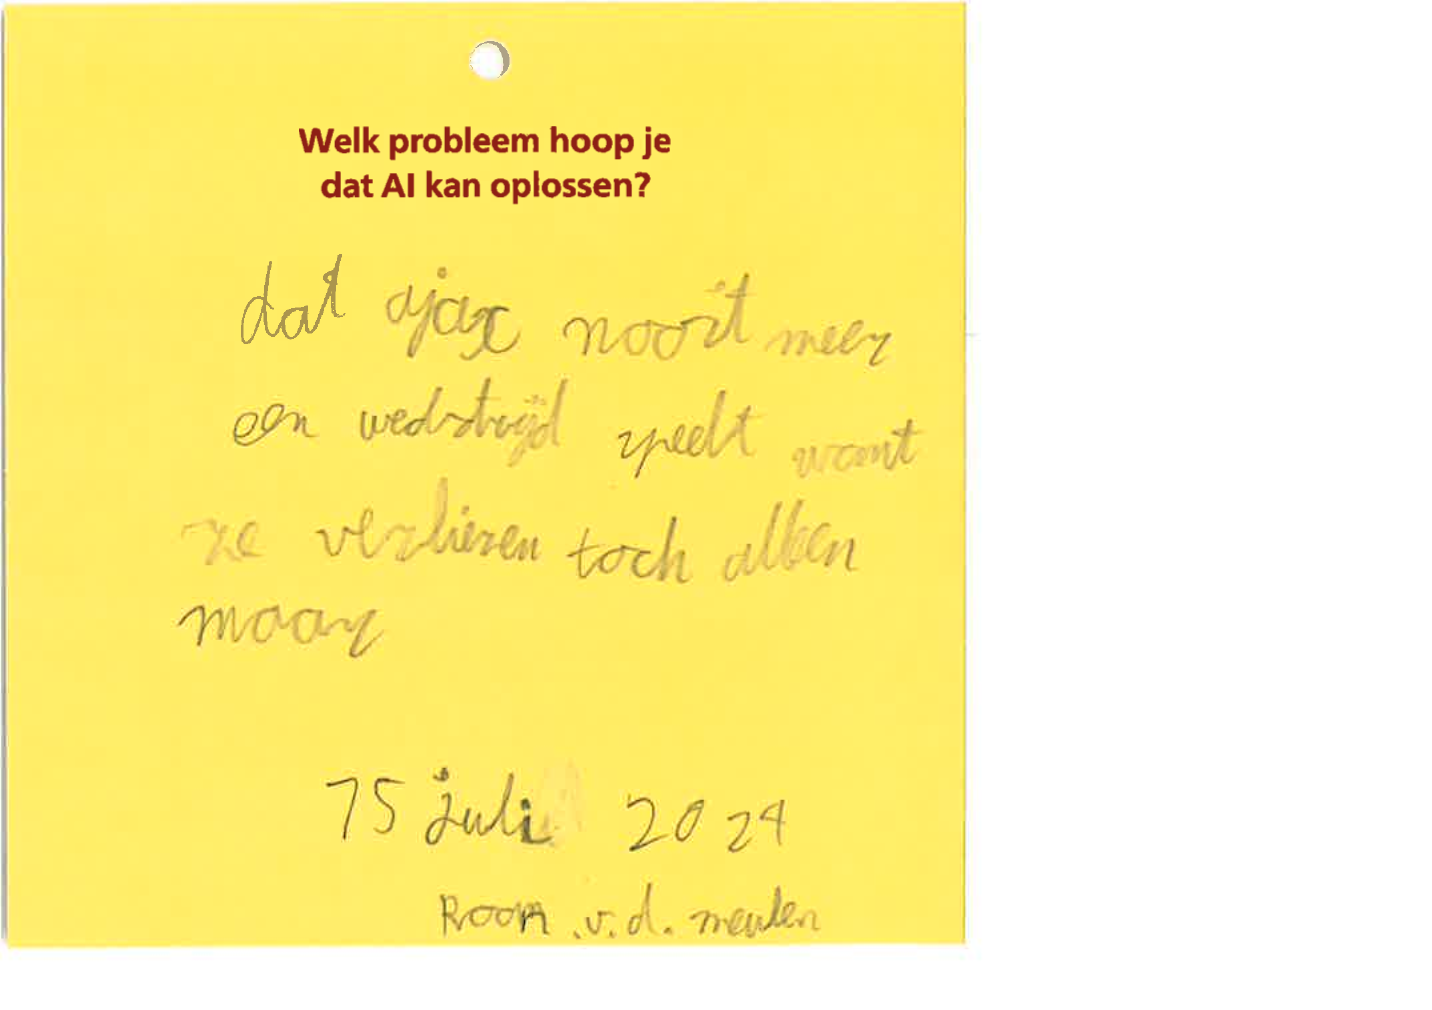 Welk probleem hoop je
dat AI kan oplossen?
dat ajax nooit meer
een wedstrijd speelt want
ze verliezen toch alleen
maar
15 juli 2024
Roan v.d. meulen